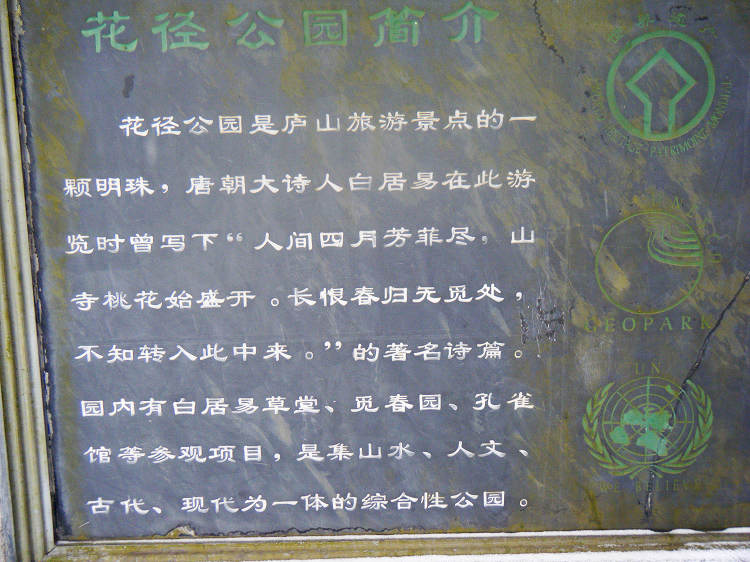 花径公园简介
花径公园是庐山旅游景点的一
颗明珠，唐朝大诗人白居易在此游
览时曾写下“人间四月芳菲尽，山
寺桃花始盛开。长恨春归无觅处，
不知转入此中来。”的著名诗篇。
园内有白居易草堂、觅春园、孔雀
馆等参观项目，是集山水、人文、
古代、现代为一体的综合性公园。
GEOPARK
UN